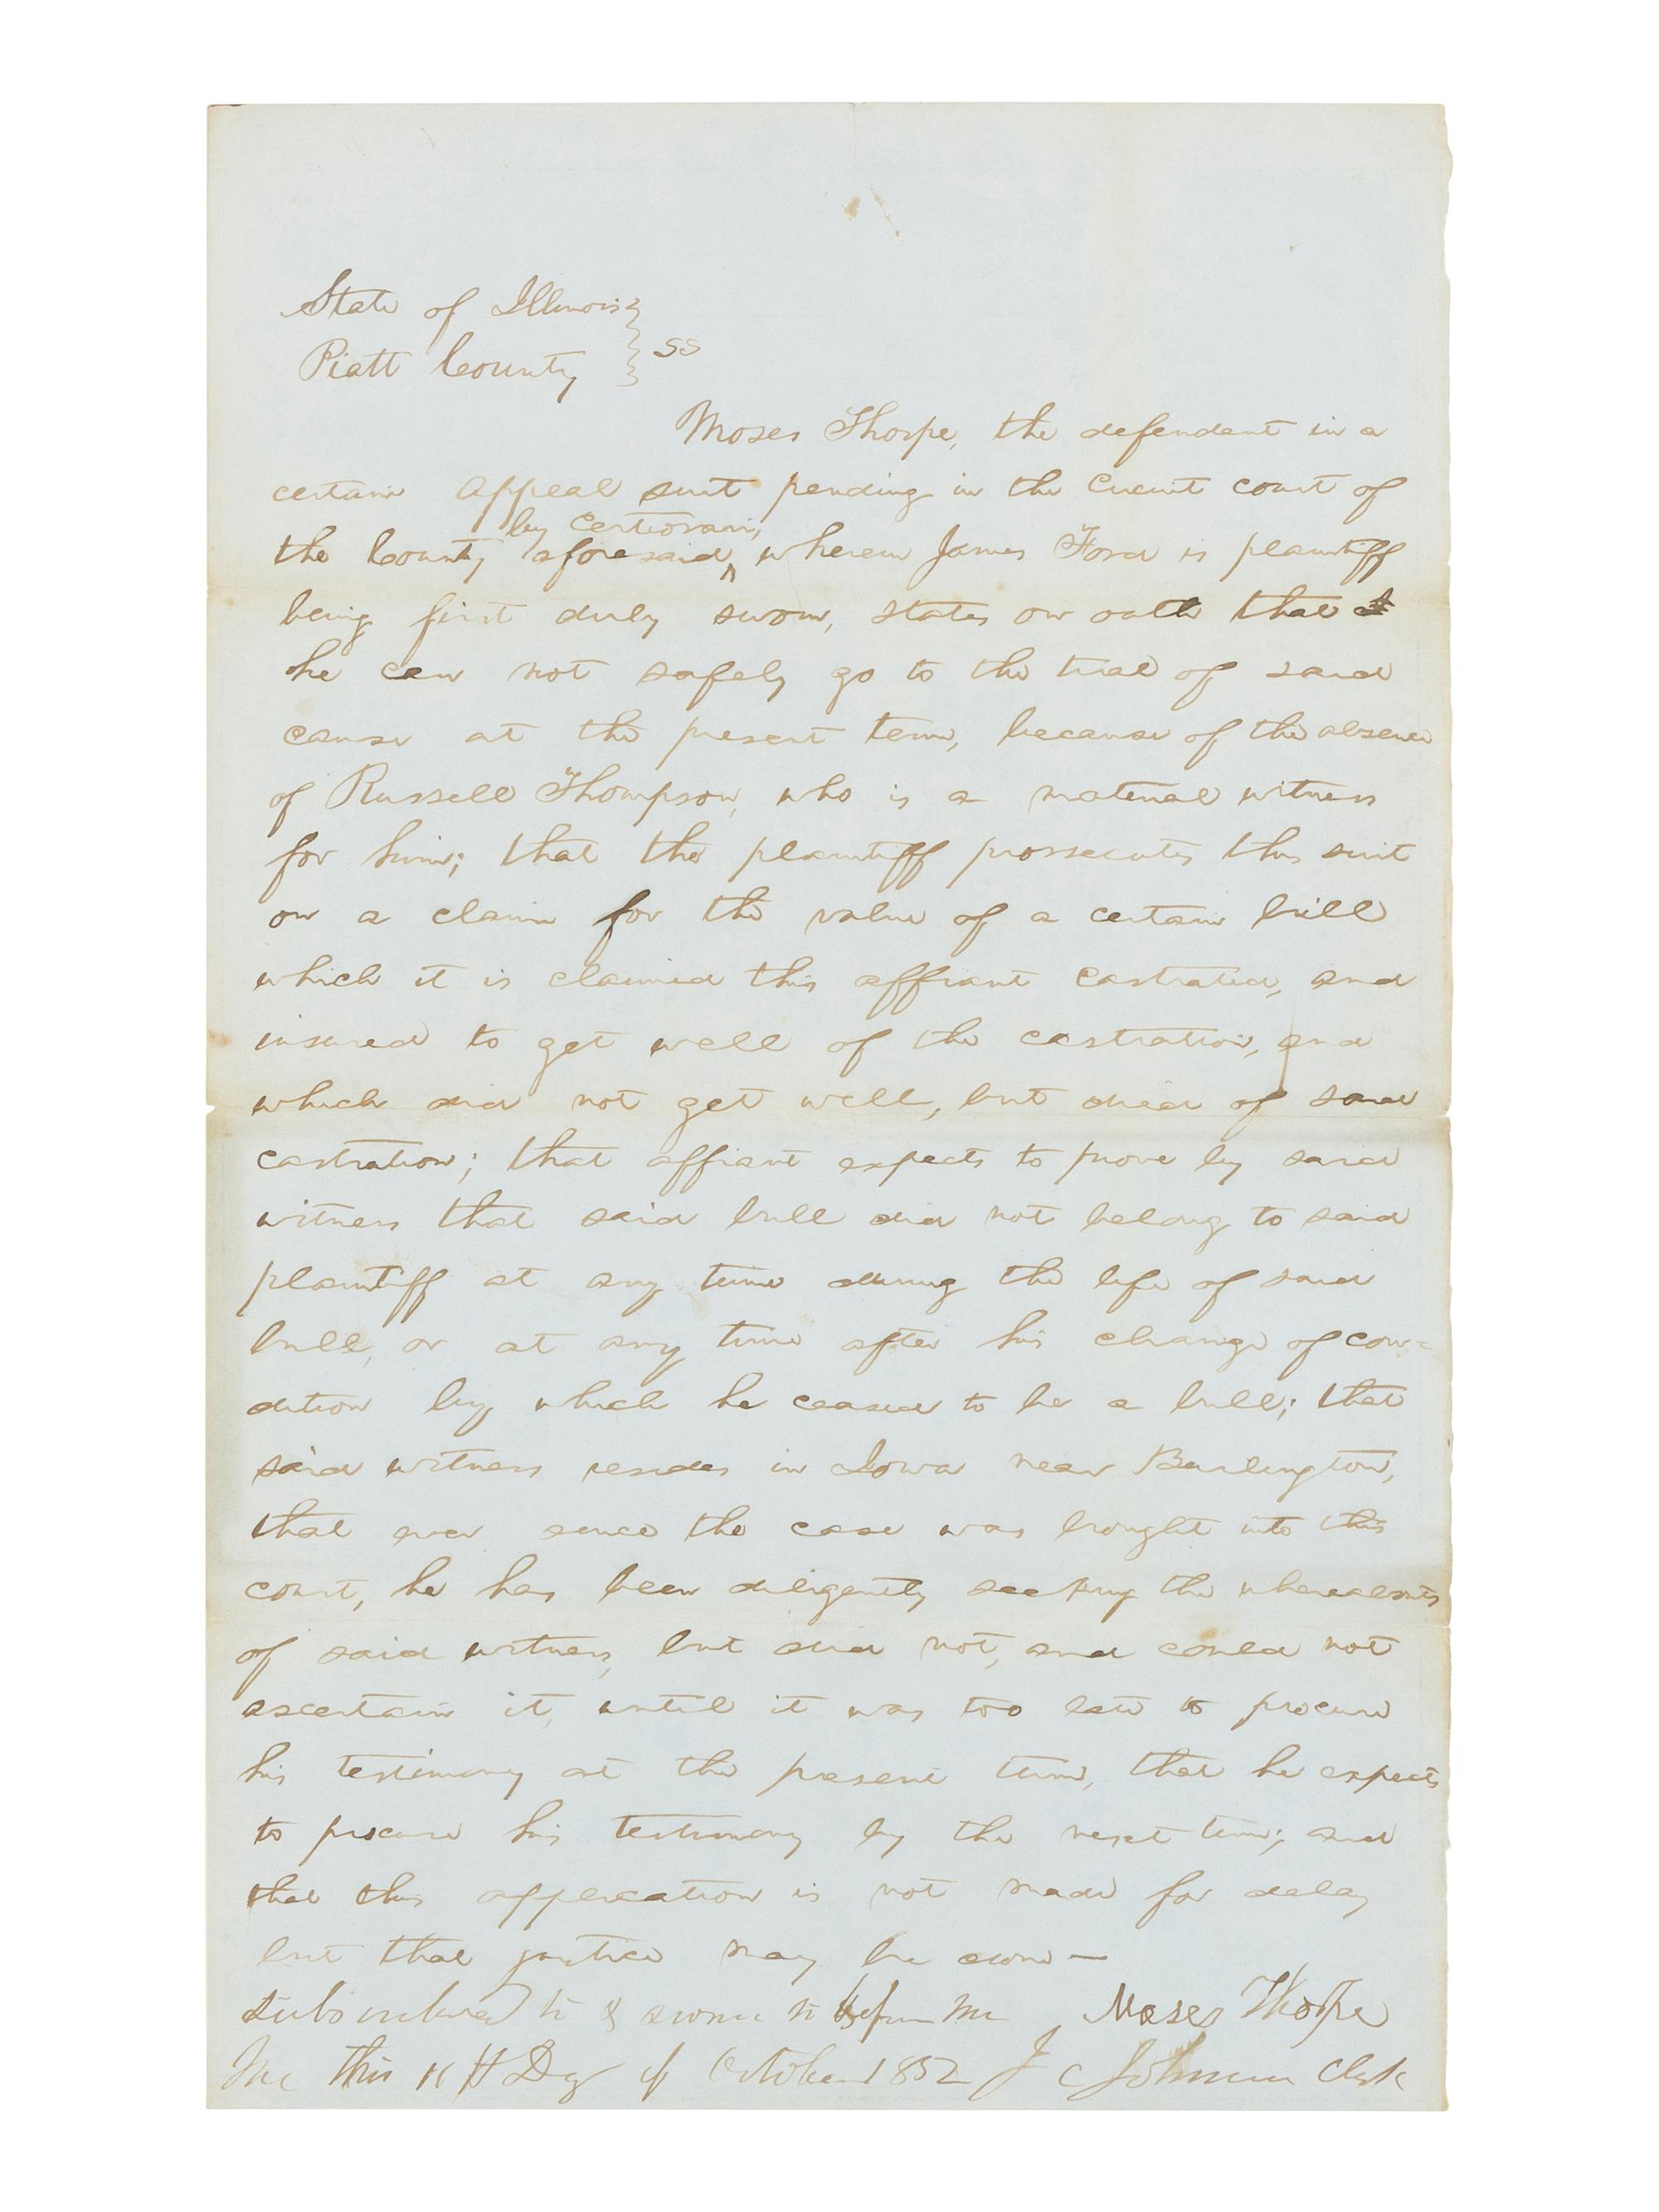 State of Illinois }
Piatt County } SS
Moses Thorpe, the defendent in a
certain appeal suit pending in the Circuit court of
by Certiorari,
the County aforesaid ^ wherein James Ford is plaintiff
being first duly sworn, states on oath that
he can not safely go to the trial of said
cause at the present term, because of the absence
of Russell Thompson, who is a material witness
for him; that the plaintiff prossecutes this suit
on a claim for the value of a certain bull
which it is claimed this affiant castrated, and
insured to get well of the castration, and
which did not get well, but died of said
castration; that affiant expects to prove by said
witness that said bull did not belong to said
plaintiff at any time during the life of said
bull, or at any time after his change of con=
dition by which he ceased to be a bull; that
said witness resides in Iowa near Burlington,
that ever since the case was brought into this
court, he has been diligently seeking the whereabouts
of said witness, but did not, and could not
ascertain it, until it was too late to procure
his testimony at the present term, that he expects
to procure his testimony by the next term; and
that this application is not made for delay
but that justice may be done —
Subscribed to & sworn to before me Moses Thorpe
Me this Day of October 1852 J C Johnson Clerk